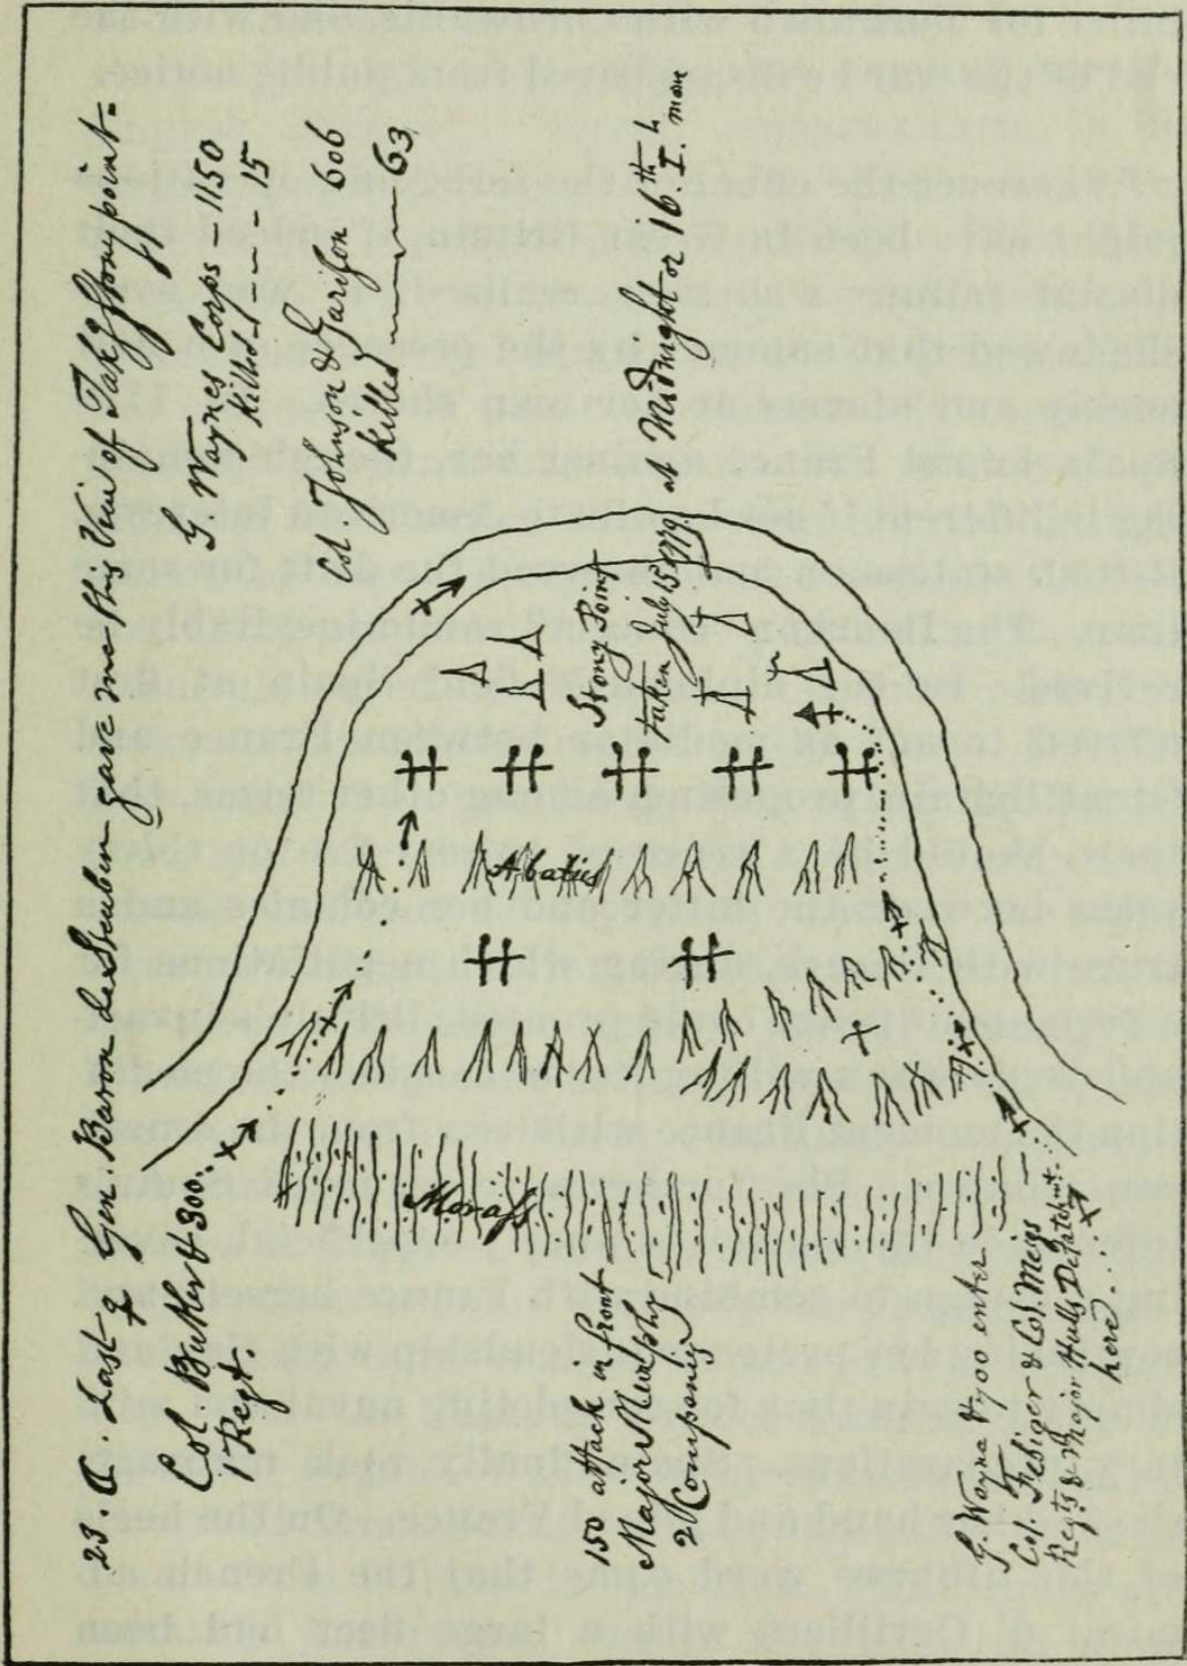 23. A. Last Gen. Baron de Steuben gave me this View of Takg Stony point.
G. Waynes Corps - 1150
Killed - - - - 15
Col. Johnson & Garison 606
killed 63
Col. Butler & 300.
1 Regt.
Abatis
Stony Point
taken July 15 1779.
at Midnight or 16th I. mane
Morass
150 attack in front
Major Murphy
2 Companys
G. Wayne & 700 enter
Col. Febiger & Col. Meigs
Regts & Major Hulls Detatchmt.
here